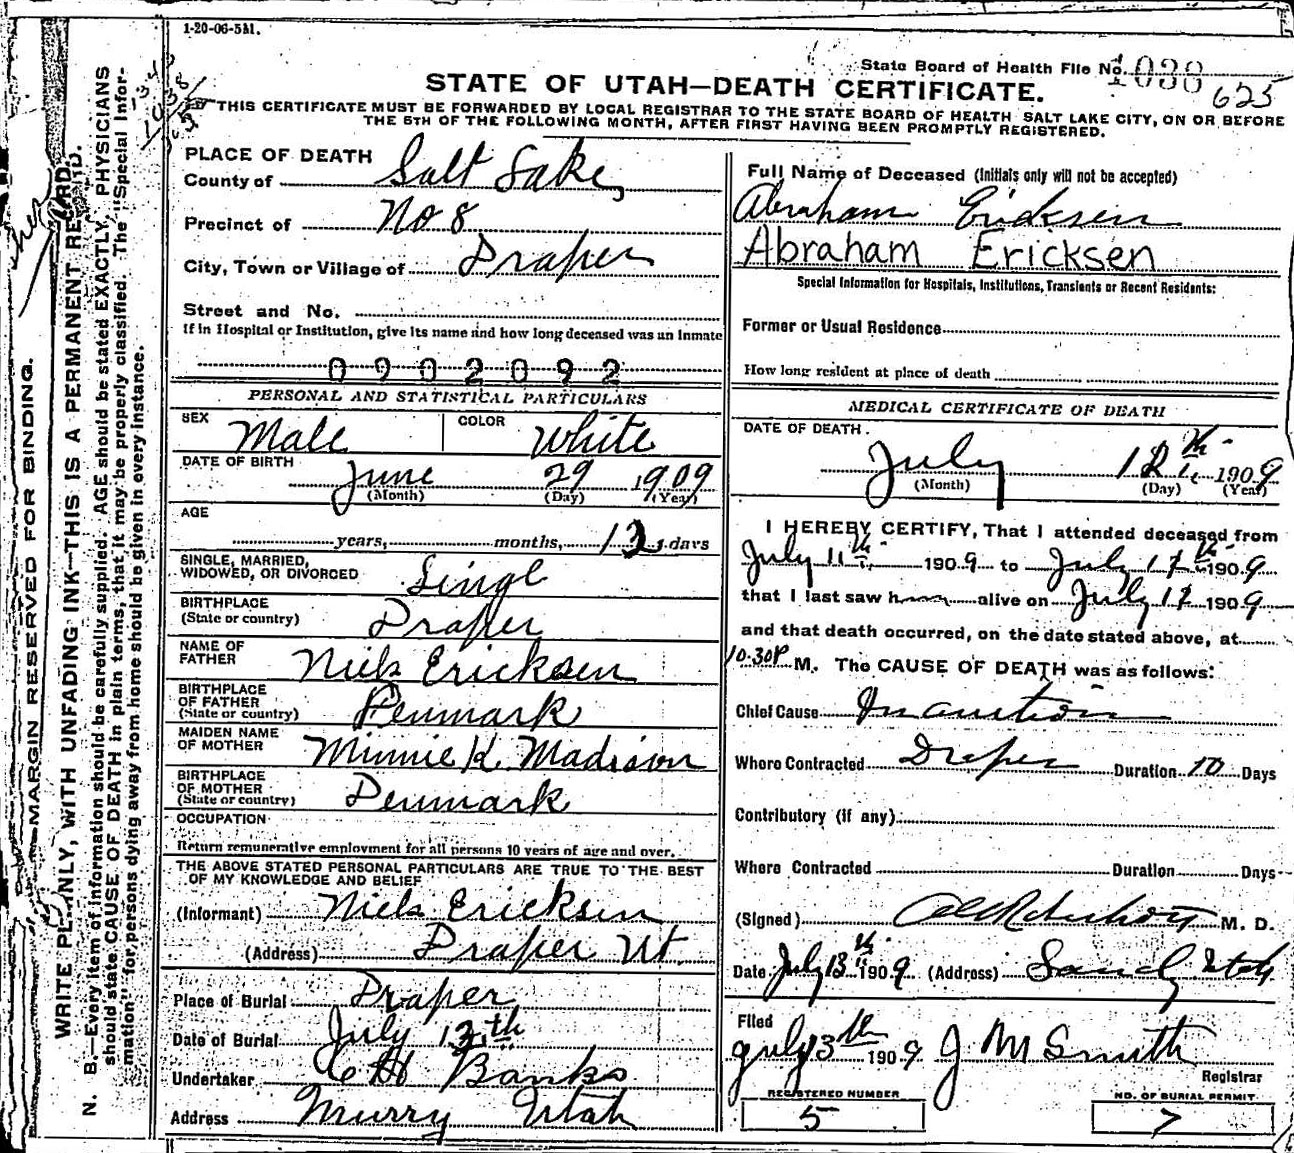 1-20-06-5M.
State Board of Health File No. 1038 625
STATE OF UTAH—DEATH CERTIFICATE.
THIS CERTIFICATE MUST BE FORWARDED BY LOCAL REGISTRAR TO THE STATE BOARD OF HEALTH SALT LAKE CITY, ON OR BEFORE
THE 5TH OF THE FOLLOWING MONTH, AFTER FIRST HAVING BEEN PROMPTLY REGISTERED.
MARGIN RESERVED FOR BINDING.
WRITE PLAINLY, WITH UNFADING INK—THIS IS A PERMANENT RECORD.
N. B.—Every item of information should be carefully supplied. AGE should be stated EXACTLY, PHYSICIANS
should state CAUSE OF DEATH in plain terms, that it may be properly classified. The "Special Infor-
mation" for persons dying away from home should be given in every instance.
PLACE OF DEATH
County of Salt Lake
Precinct of No 8
City, Town or Village of Draper
Street and No.
If in Hospital or Institution, give its name and how long deceased was an Inmate
0902092
PERSONAL AND STATISTICAL PARTICULARS
SEX Male COLOR White
DATE OF BIRTH June 29 1909
(Month) (Day) (Year)
AGE
years, months, 12 days
SINGLE, MARRIED,
WIDOWED, OR DIVORCED Singl
BIRTHPLACE
(State or country) Draper
NAME OF
FATHER Niels Ericksen
BIRTHPLACE
OF FATHER
(State or country) Denmark
MAIDEN NAME
OF MOTHER Minnie K. Madison
BIRTHPLACE
OF MOTHER
(State or country) Denmark
OCCUPATION
Return remunerative employment for all persons 10 years of age and over.
THE ABOVE STATED PERSONAL PARTICULARS ARE TRUE TO THE BEST
OF MY KNOWLEDGE AND BELIEF
(Informant) Niels Ericksen
(Address) Draper Ut.
Place of Burial Draper
Date of Burial July 13th
Undertaker Banks
Address Murry Utah
Full Name of Deceased (Initials only will not be accepted)
Abraham Ericksen
Abraham Ericksen
Special Information for Hospitals, Institutions, Transients or Recent Residents:
Former or Usual Residence
How long resident at place of death
MEDICAL CERTIFICATE OF DEATH
DATE OF DEATH.
July 12th 1909
(Month) (Day) (Year)
I HEREBY CERTIFY, That I attended deceased from
July 11th 1909 to July 12th 1909
that I last saw him alive on July 12 1909
and that death occurred, on the date stated above, at
10.30P M. The CAUSE OF DEATH was as follows:
Chief Cause Inanition
Where Contracted Draper Duration 10 Days
Contributory (if any)
Where Contracted Duration Days
(Signed) M. D.
Date July 13th 1909 (Address) Sandy Utah
Filed
July 13th 1909 J M Smith
Registrar
REGISTERED NUMBER
5
NO. OF BURIAL PERMIT
7